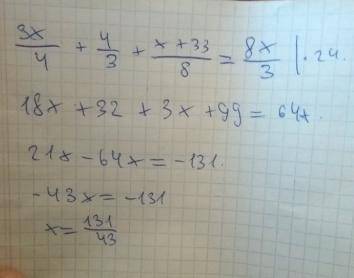 3x/4 + 4/3 + x+33/8 = 8x/3 | · 24.
18x + 32 + 3x + 99 = 64x.
21x - 64x = -131.
-43x = -131
x = 131/43